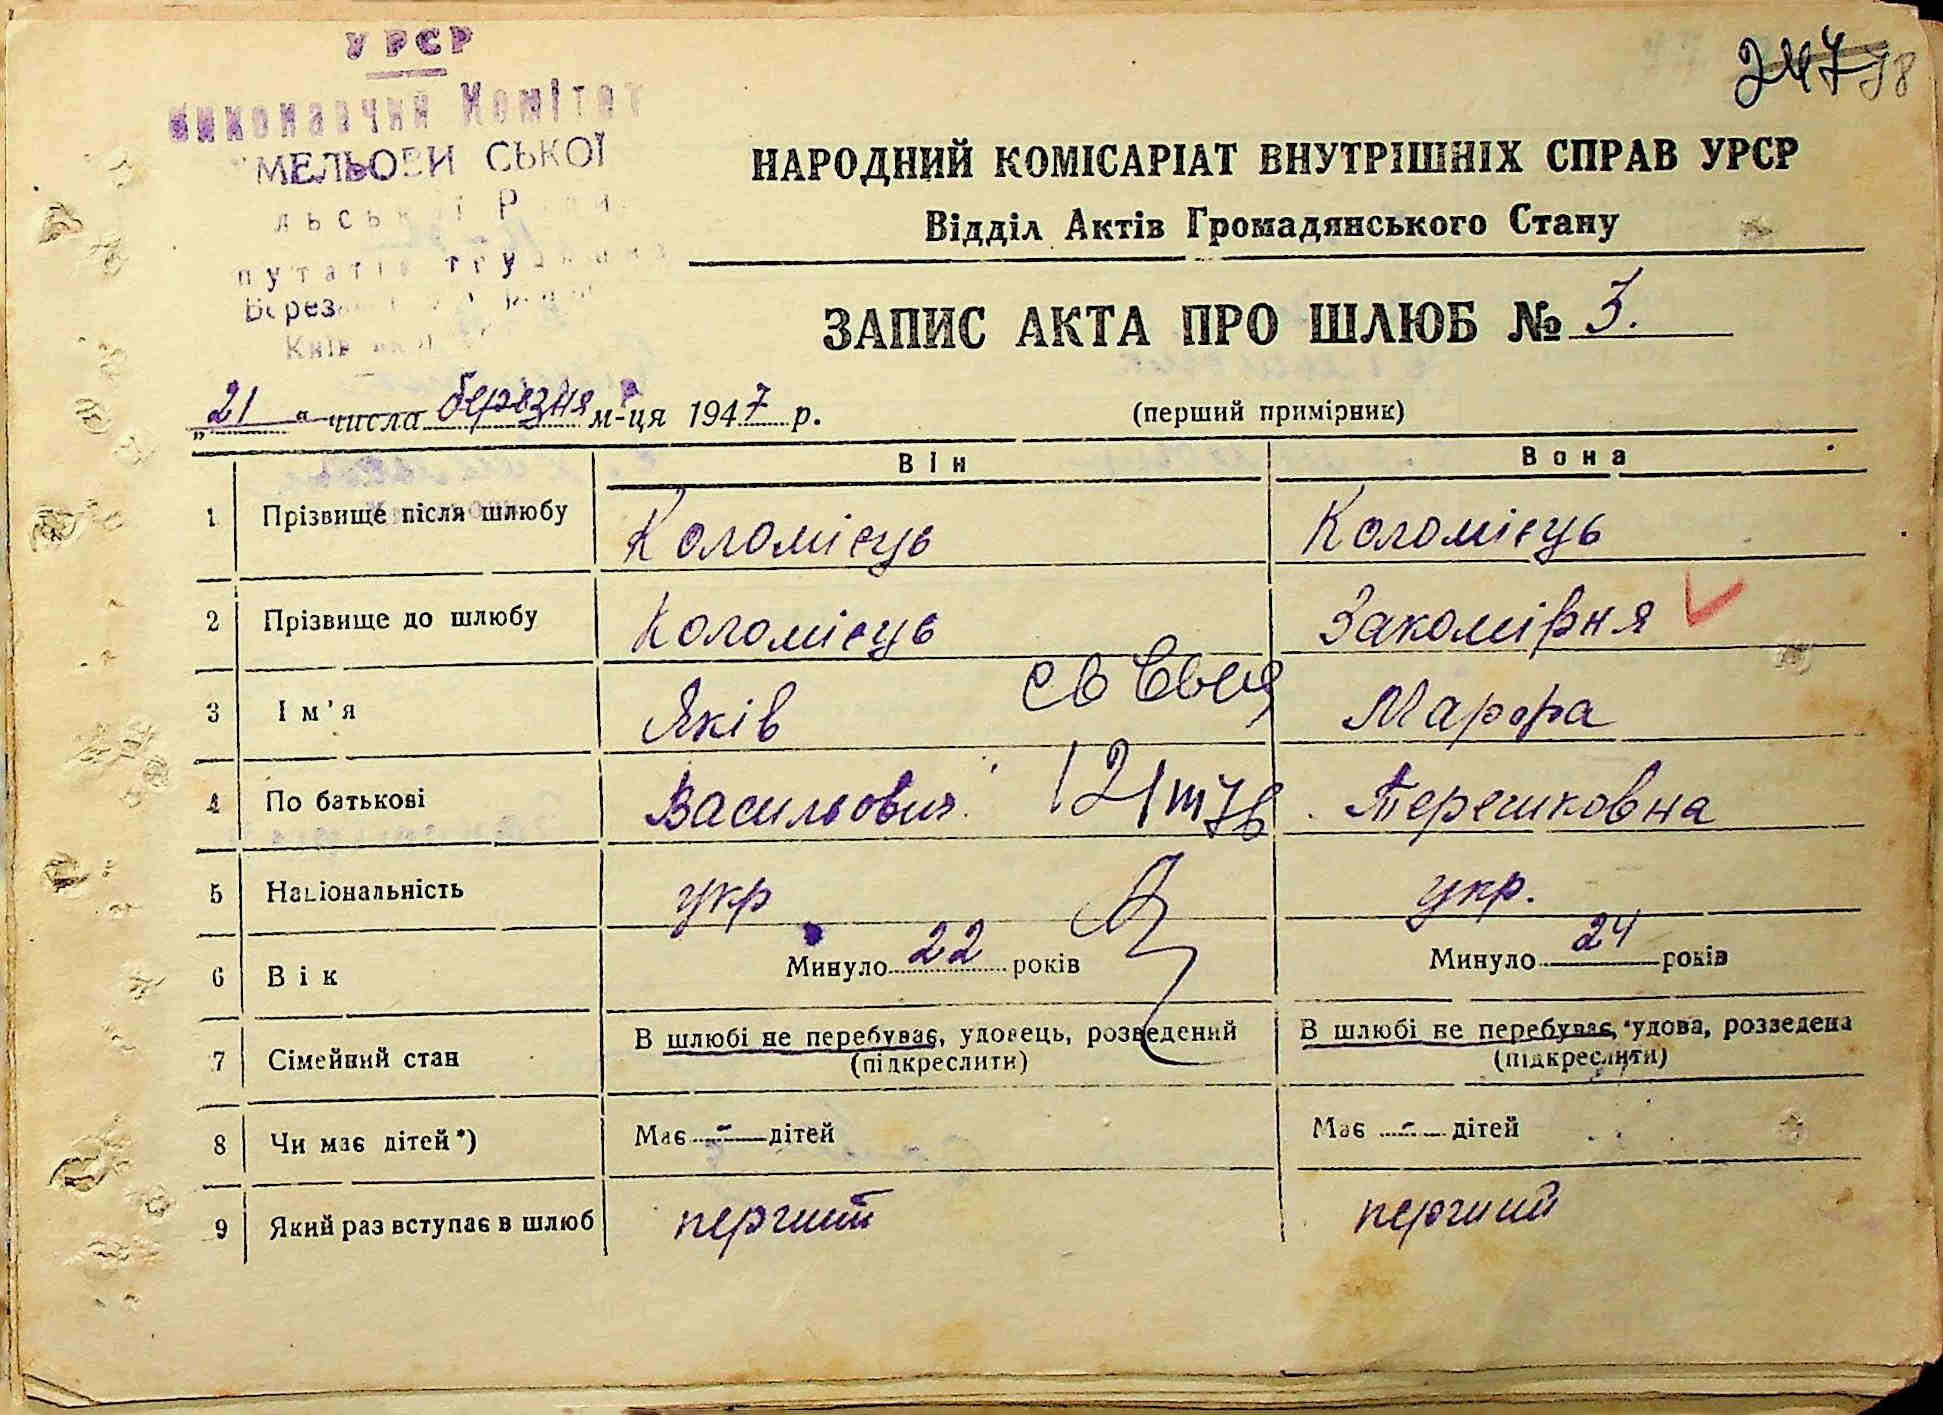 УРСР
Виконавчий Комітет
СЬКОЇ
НАРОДНИЙ КОМІСАРІАТ ВНУТРІШНІХ СПРАВ УРСР
Відділ Актів Громадянського Стану
ЗАПИС АКТА ПРО ШЛЮБ № 3.
„21“ числа березня м-ця 1947 р.
(перший примірник)
Він Вона
1 Прізвище після шлюбу Коломієць Коломієць
2 Прізвище до шлюбу Коломієць Закомірня
3 Ім'я Яків Марфа
4 По батькові Васильович Терешковна
5 Національність укр укр.
6 Вік Минуло 22 років Минуло 24 років
7 Сімейний стан В шлюбі не перебуває, удовець, розведений В шлюбі не перебуває, удова, розведена
(підкреслити) (підкреслити)
8 Чи має дітей*) Має - дітей Має - дітей
9 Який раз вступає в шлюб перший перший